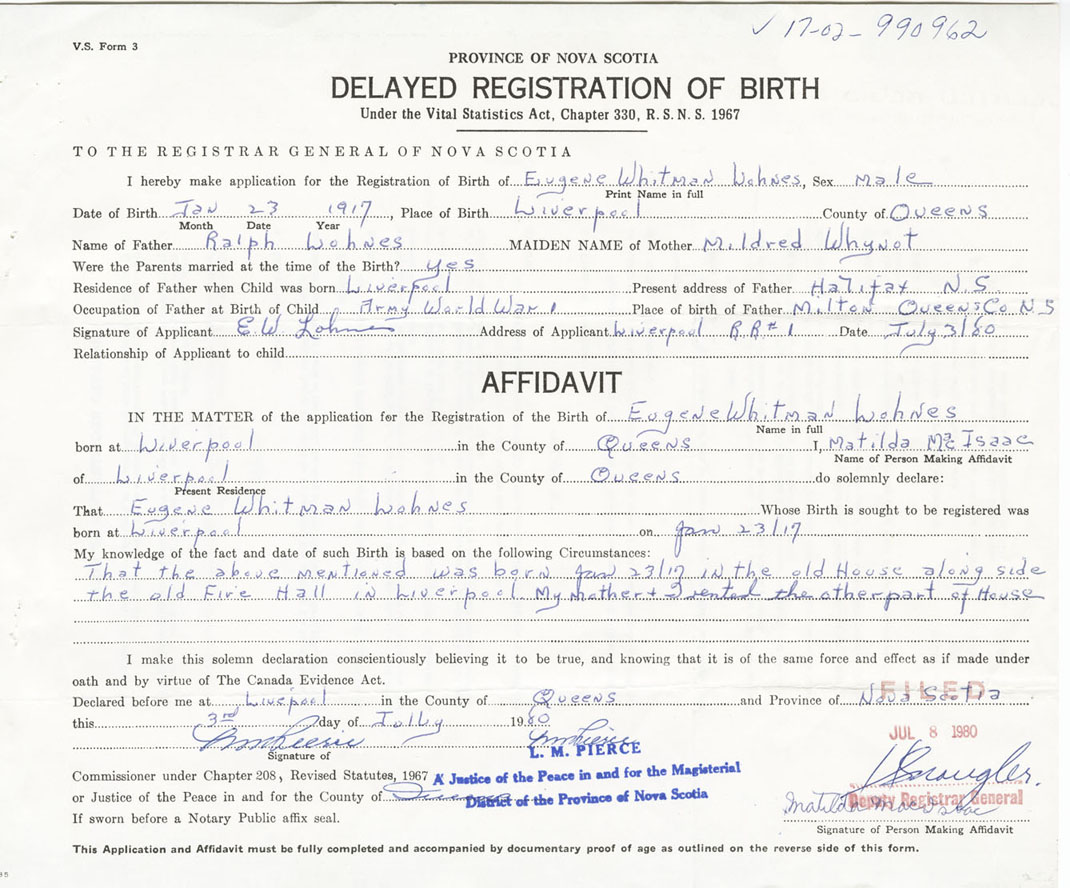 ✓ 17-02-990962
V.S. Form 3
PROVINCE OF NOVA SCOTIA
DELAYED REGISTRATION OF BIRTH
Under the Vital Statistics Act, Chapter 330, R.S.N.S. 1967
TO THE REGISTRAR GENERAL OF NOVA SCOTIA
I hereby make application for the Registration of Birth of Eugene Whitman Lohnes, Sex Male
Print Name in full
Date of Birth Jan 23 1917, Place of Birth Liverpool County of Queens
Month Date Year
Name of Father Ralph Lohnes MAIDEN NAME of Mother Mildred Whynot
Were the Parents married at the time of the Birth? yes
Residence of Father when Child was born Liverpool Present address of Father Halifax N.S.
Occupation of Father at Birth of Child Army World War 1 Place of birth of Father Milton Queens Co N S
Signature of Applicant E.W. Lohnes Address of Applicant Liverpool R.R # 1 Date July 3/80
Relationship of Applicant to child
AFFIDAVIT
IN THE MATTER of the application for the Registration of the Birth of Eugene Whitman Lohnes
Name in full
born at Liverpool in the County of Queens I, Matilda Mc Isaac
Name of Person Making Affidavit
of Liverpool in the County of Queens do solemnly declare:
Present Residence
That Eugene Whitman Lohnes Whose Birth is sought to be registered was
born at Liverpool on Jan 23/17
My knowledge of the fact and date of such Birth is based on the following Circumstances:
That the above mentioned was born Jan 23/17 in the old House along side
the old Fire Hall in Liverpool My Mother + I rented the other part of House
I make this solemn declaration conscientiously believing it to be true, and knowing that it is of the same force and effect as if made under
oath and by virtue of The Canada Evidence Act.
Declared before me at Liverpool in the County of Queens and Province of Nova Scotia
FILED
this 3rd day of July 1980
JUL 8 1980
Signature of
L. M. PIERCE
Commissioner under Chapter 208, Revised Statutes, 1967 A Justice of the Peace in and for the Magisterial
or Justice of the Peace in and for the County of District of the Province of Nova Scotia
Deputy Registrar General
Matilda MacIsaac
If sworn before a Notary Public affix seal.
Signature of Person Making Affidavit
This Application and Affidavit must be fully completed and accompanied by documentary proof of age as outlined on the reverse side of this form.